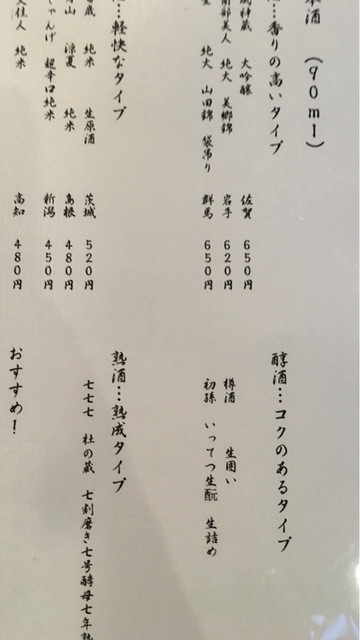 本酒 (90ml)
…香りの高いタイプ
大吟醸 佐賀 650円
南部美人 純大 美郷錦 岩手 620円
純大 山田錦 袋吊り 群馬 650円
…軽快なタイプ
純米 生原酒 茨城 520円
涼夏 純米 島根 480円
ちゃんげ 超辛口純米 新潟 450円
文佳人 純米 高知 480円
醇酒…コクのあるタイプ
樽酒 生囲い
初孫 いってつ生酛 生詰め
熟酒…熟成タイプ
七七七 杜の蔵 七割磨き七号酵母七年熟
おすすめ!